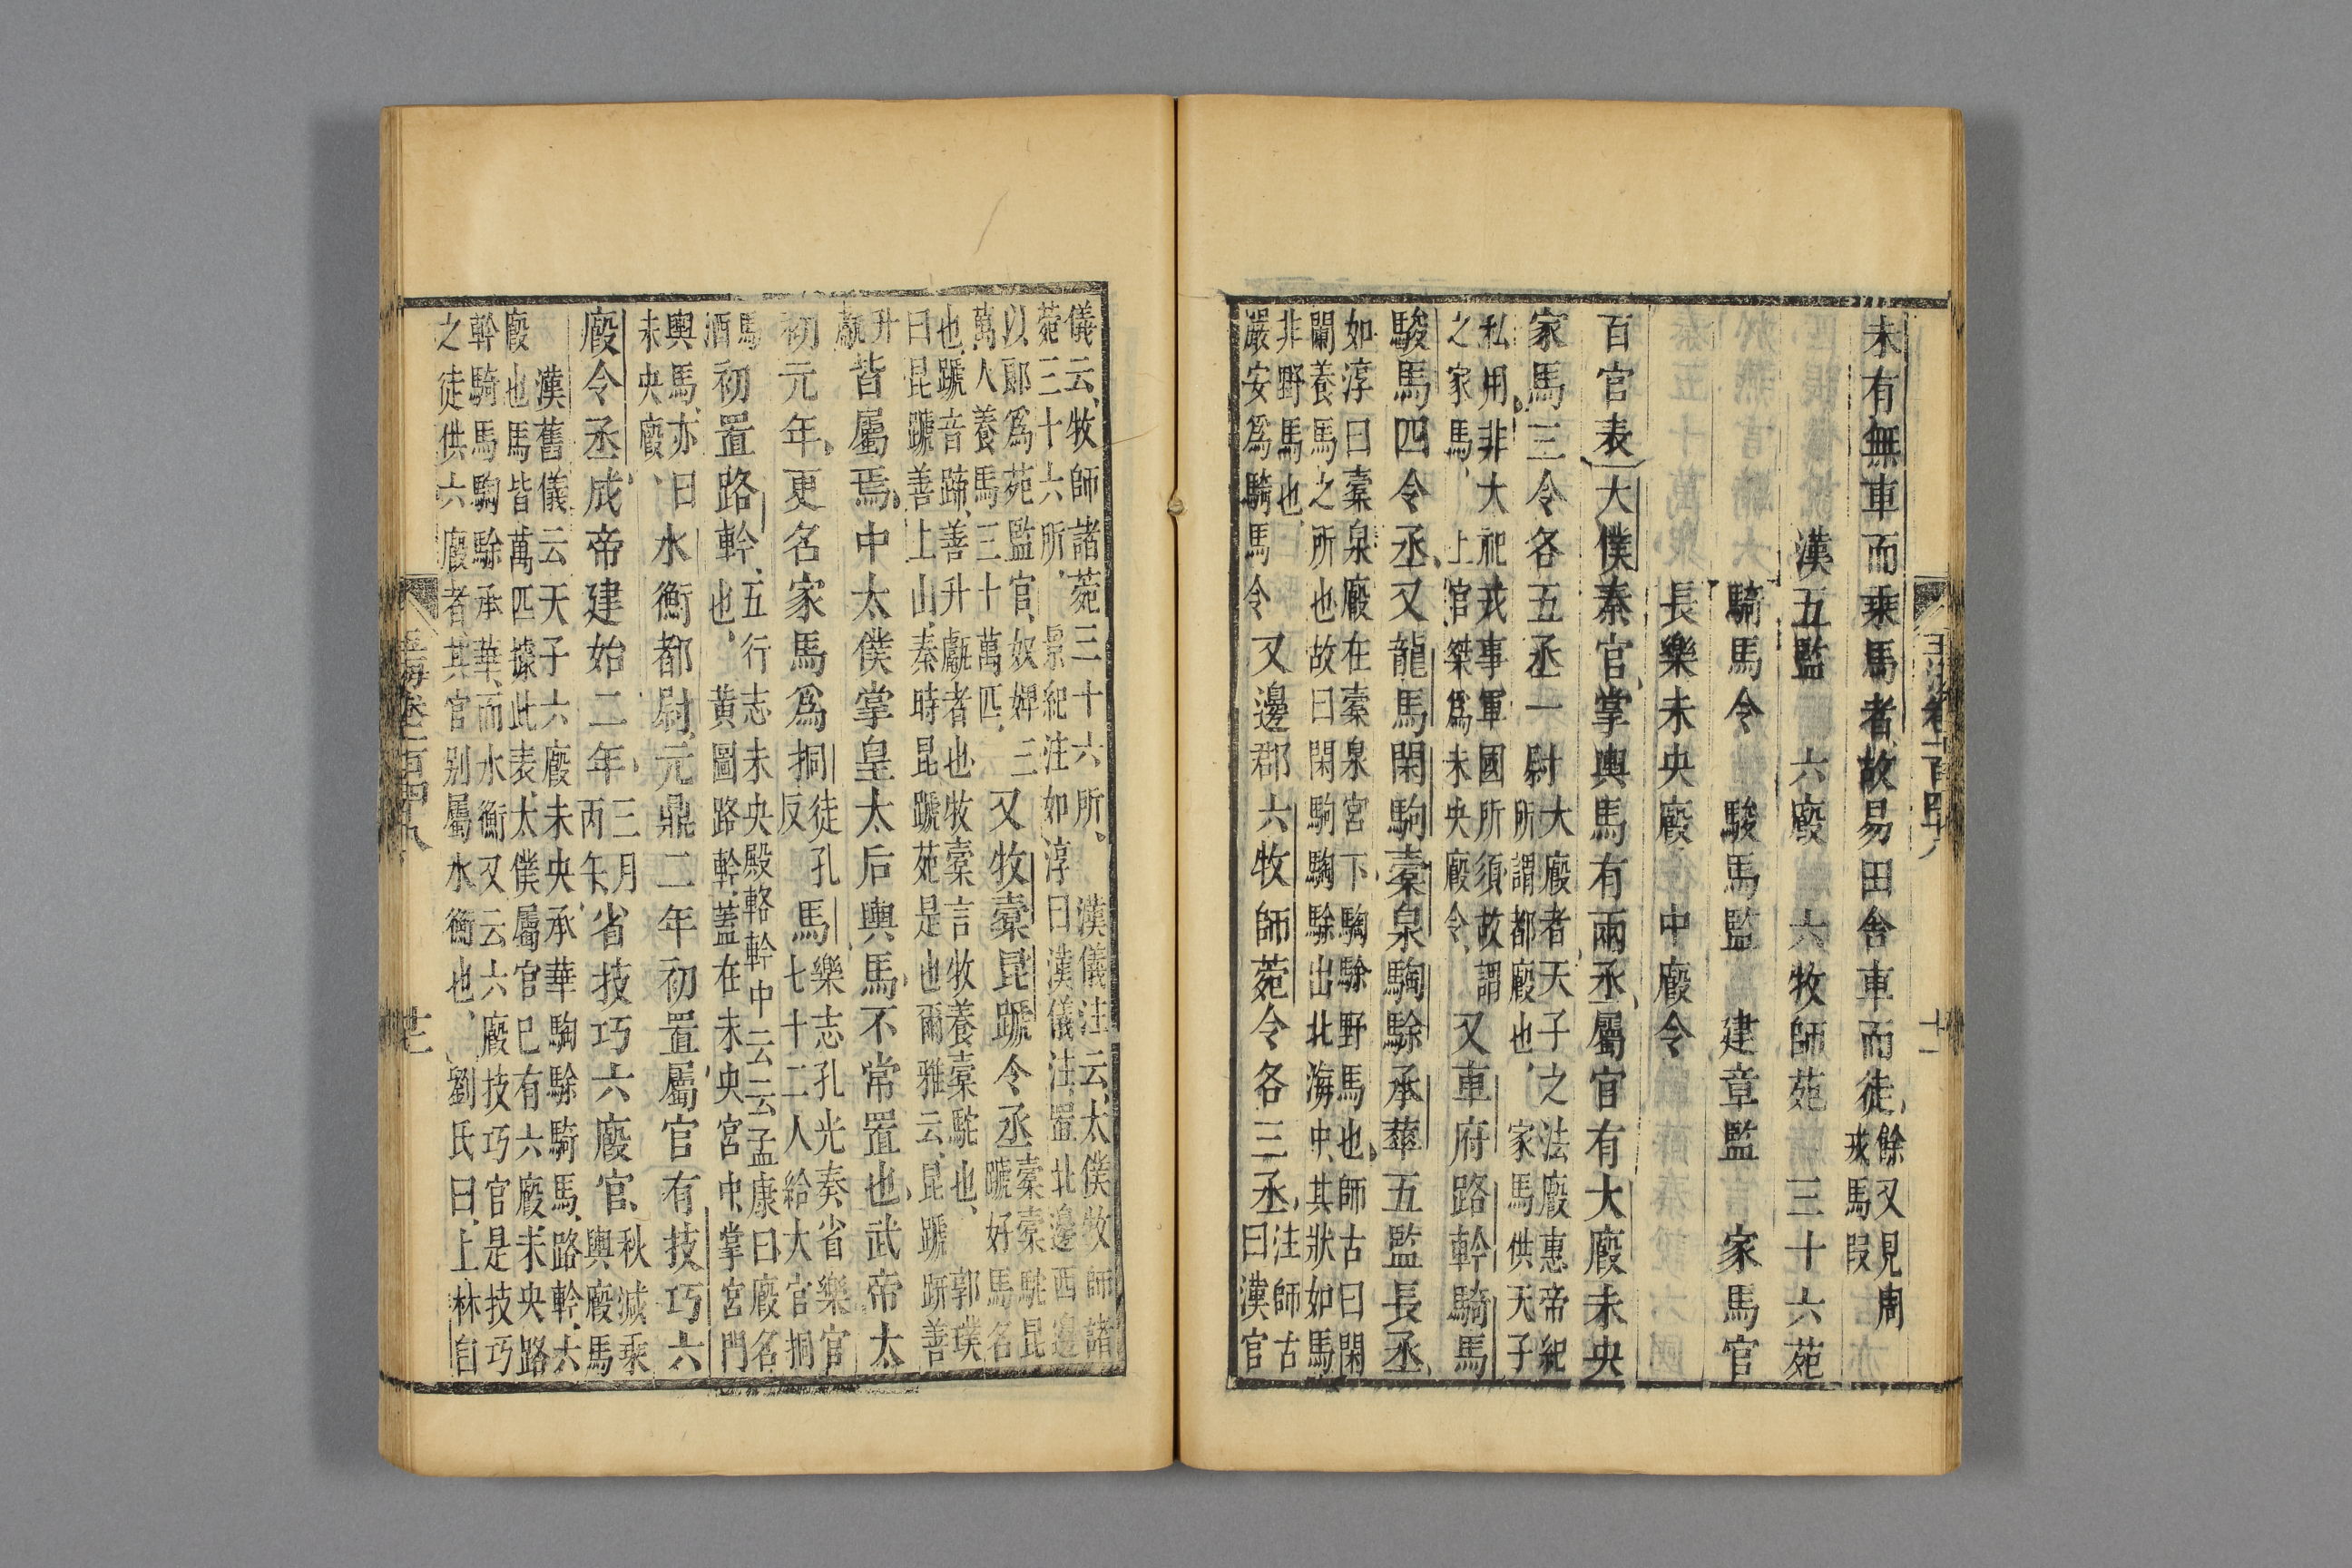 玉海卷一百四十八
十一
未有無車而乘馬者故易田舍車而徒餘又見周
戎馬叚
漢五監 六廄 六牧師苑 三十六苑
騎馬令 駿馬監 建章監 家馬官
長樂未央廄 中廄令
百官表大僕秦官掌輿馬有兩丞屬官有大廄未央
家馬三令各五丞一尉大廄者天子之法廄惠帝紀
所謂都廄也 家馬供天子
私用非大祀戎事軍國所須故謂
之家馬 上官桀爲未央廄令
又車府路軨騎馬
駿馬四令丞又龍馬閑駒槖泉騊駼承華五監長丞
如淳曰槖泉廄在槖泉宮下騊駼野馬也師古曰閑
闌養馬之所也故曰閑駒騊駼出北海中其狀如馬
非野馬也
嚴安爲騎馬令
又邊郡六牧師菀令各三丞注師古
曰漢官
儀云牧師諸菀三十六所 漢儀注云太僕牧師諸
菀三十六所 景紀注如淳曰漢儀注置北邊西邊
以郎爲苑監官奴婢三
萬人養馬三十萬匹
又牧槖昆蹏令丞槖槖駝昆
蹏好馬名
也蹏音蹄善升甗者也牧槖言牧養槖駝也 郭璞
曰昆蹏善上山秦時昆蹏苑是也爾雅云昆蹏趼善
升
甗
皆屬焉中太僕掌皇太后輿馬不常置也武帝太
初元年更名家馬爲挏徒孔
反
馬樂志孔光奏省樂官
七十二人給大官挏
馬
酒
初置路軨五行志未央殿輅軨中云云孟康曰廄名
也 黃圖路軨蓋在未央宮中掌宮門
輿馬亦曰
未央廄
水衡都尉元鼎二年初置屬官有技巧六
廄令丞成帝建始二年三月
丙午
省技巧六廄官秋減乘
輿廄馬
漢舊儀云天子六廄未央承華騊駼騎馬路軨六
廄也馬皆萬匹據此表太僕屬官已有六廄未央路
軨騎馬騊駼承華而水衡又云六廄技巧官是技巧
之徒供六廄者其官別屬水衡也 劉氏曰上林自
玉海卷一百四十八
十二